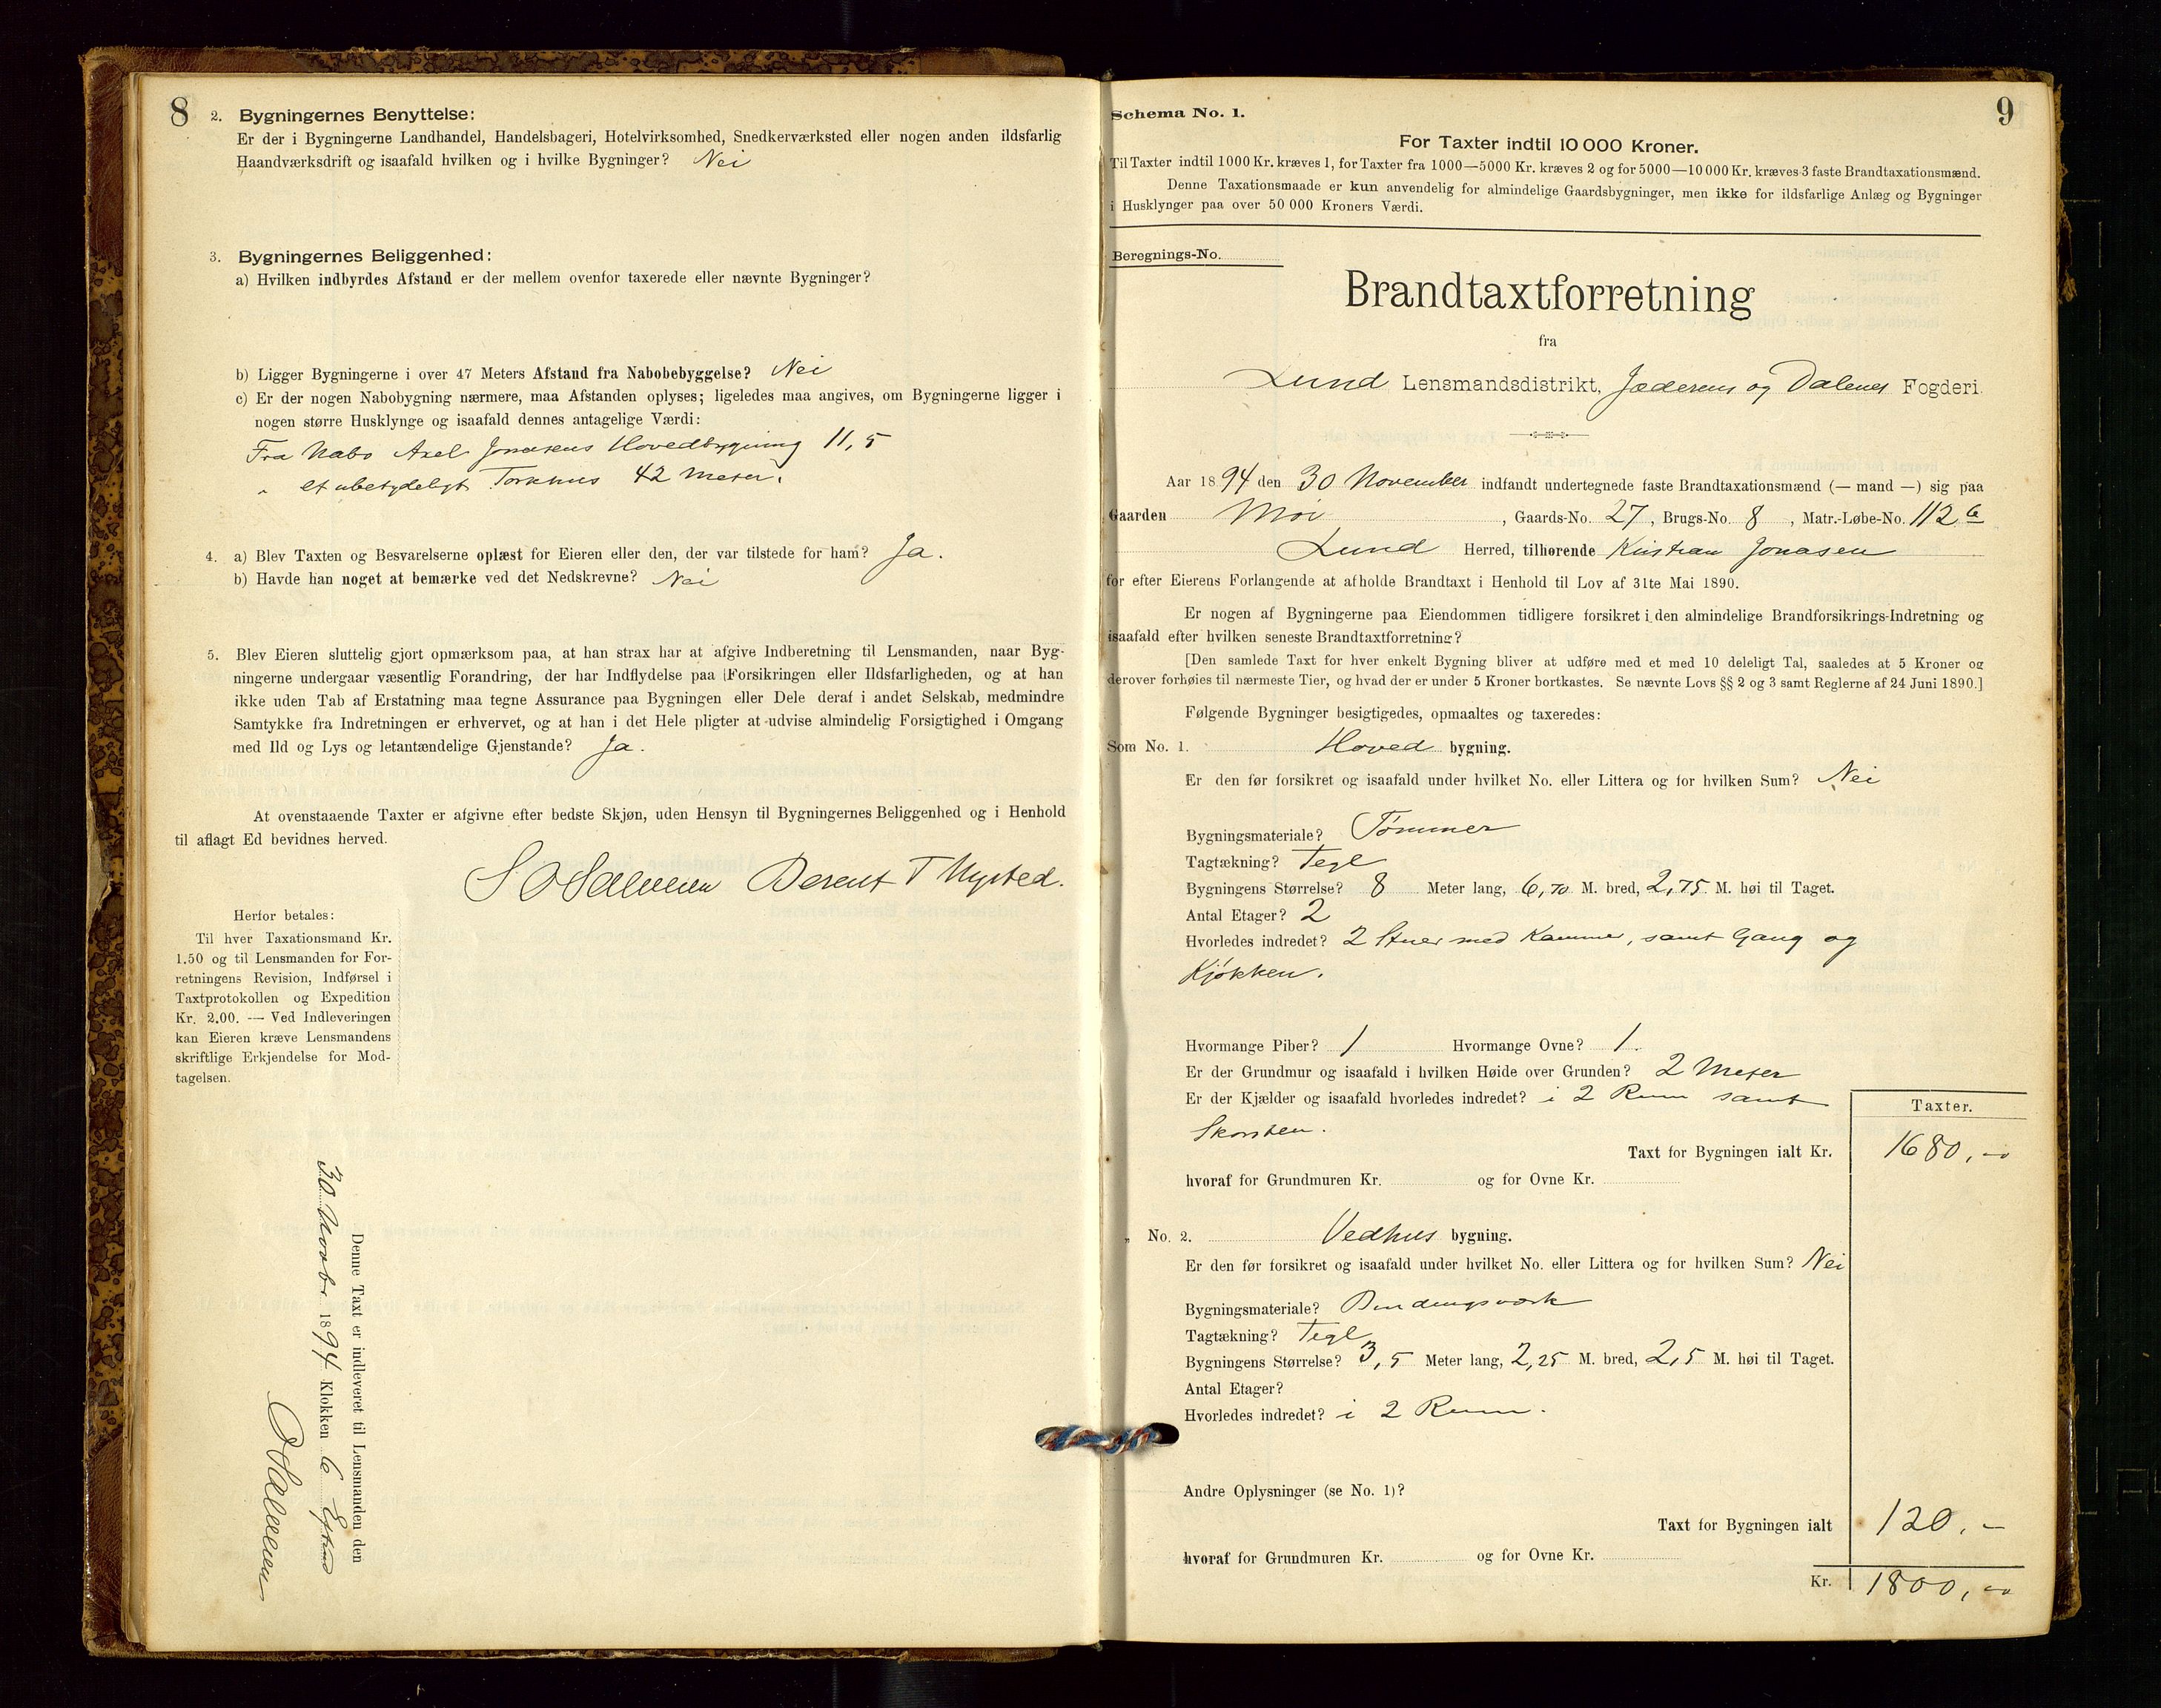 8
2. Bygningernes Benyttelse:
Er der i Bygningerne Landhandel, Handelsbageri, Hotelvirksomhed, Snedkerværksted eller nogen anden ildsfarlig
Haandværksdrift og isaafald hvilken og i hvilke Bygninger? Nei
3. Bygningernes Beliggenhed:
a) Hvilken indbyrdes Afstand er der mellem ovenfor taxerede eller nævnte Bygninger?
b) Ligger Bygningerne i over 47 Meters Afstand fra Nabobebyggelse? Nei
c) Er der nogen Nabobygning nærmere, maa Afstanden oplyses; ligeledes maa angives, om Bygningerne ligger i
nogen større Husklynge og isaafald dennes antagelige Værdi:
Fra Nabo Axel Jonasens Hovedbygning 11,5
" et ubetydeligt Torkhus 42 Meter.
4. a) Blev Taxten og Besvarelserne oplæst for Eieren eller den, der var tilstede for ham? Ja.
b) Havde han noget at bemærke ved det Nedskrevne? Nei
5. Blev Eieren sluttelig gjort opmærksom paa, at han strax har at afgive Indberetning til Lensmanden, naar Byg-
ningerne undergaar væsentlig Forandring, der har Indflydelse paa Forsikringen eller Ildsfarligheden, og at han
ikke uden Tab af Erstatning maa tegne Assurance paa Bygningen eller Dele deraf i andet Selskab, medmindre
Samtykke fra Indretningen er erhvervet, og at han i det Hele pligter at udvise almindelig Forsigtighed i Omgang
med Ild og Lys og letantændelige Gjenstande? Ja.
At ovenstaaende Taxter er afgivne efter bedste Skjøn, uden Hensyn til Bygningernes Beliggenhed og i Henhold
til aflagt Ed bevidnes herved.
Berent T Nysted.
Herfor betales:
Til hver Taxationsmand Kr.
1.50 og til Lensmanden for For-
retningens Revision, Indførsel i
Taxtprotokollen og Expedition
Kr. 2.00. — Ved Indleveringen
kan Eieren kræve Lensmandens
skriftlige Erkjendelse for Mod-
tagelsen.
Denne Taxt er indleveret til Lensmanden den
30 Novbr 1894 Klokken 6
9
Schema No. 1.
For Taxter indtil 10 000 Kroner.
Til Taxter indtil 1000 Kr. kræves 1, for Taxter fra 1000—5000 Kr. kræves 2 og for 5000—10 000 Kr. kræves 3 faste Brandtaxationsmænd.
Denne Taxationsmaade er kun anvendelig for almindelige Gaardsbygninger, men ikke for ildsfarlige Anlæg og Bygninger
i Husklynger paa over 50 000 Kroners Værdi.
Beregnings-No.
Brandtaxtforretning
fra
Lund Lensmandsdistrikt, Jæderens og Dalenes Fogderi.
Aar 1894 den 30 November indfandt undertegnede faste Brandtaxationsmænd (— mand —) sig paa
Gaarden Moi, Gaards-No. 27, Brugs-No. 8, Matr.-Løbe-No. 112 c
Lund Herred, tilhørende Kristian Jonasen
for efter Eierens Forlangende at afholde Brandtaxt i Henhold til Lov af 31te Mai 1890.
Er nogen af Bygningerne paa Eiendommen tidligere forsikret i den almindelige Brandforsikrings-Indretning og
isaafald efter hvilken seneste Brandtaxtforretning?
[Den samlede Taxt for hver enkelt Bygning bliver at udføre med et med 10 deleligt Tal, saaledes at 5 Kroner og
derover forhøies til nærmeste Tier, og hvad der er under 5 Kroner bortkastes. Se nævnte Lovs §§ 2 og 3 samt Reglerne af 24 Juni 1890.]
Følgende Bygninger besigtigedes, opmaaltes og taxeredes:
Som No. 1. Hoved bygning.
Er den før forsikret og isaafald under hvilket No. eller Littera og for hvilken Sum? Nei
Bygningsmateriale? Tømmer
Tagtækning? Tegl
Bygningens Størrelse? 8 Meter lang, 6,70 M. bred, 2,75 M. høi til Taget.
Antal Etager? 2
Hvorledes indredet? 2 Stuer med Kammer, samt Gang og
Kjøkken.
Hvormange Piber? 1 Hvormange Ovne? 1.
Er der Grundmur og isaafald i hvilken Høide over Grunden? 2 Meter
Er der Kjælder og isaafald hvorledes indredet? i 2 Rum samt
Skorsten.
Taxter.
Taxt for Bygningen ialt Kr. 1680,-
hvoraf for Grundmuren Kr. og for Ovne Kr.
" No. 2. Vedhus bygning.
Er den før forsikret og isaafald under hvilket No. eller Littera og for hvilken Sum? Nei
Bygningsmateriale? Bindingsværk
Tagtækning? Tegl
Bygningens Størrelse? 3,5 Meter lang, 2,25 M. bred, 2,5 M. høi til Taget.
Antal Etager?
Hvorledes indredet? i 2 Rum.
Andre Oplysninger (se No. 1)?
Taxt for Bygningen ialt 120,-
hvoraf for Grundmuren Kr. og for Ovne Kr.
Kr. 1800,-